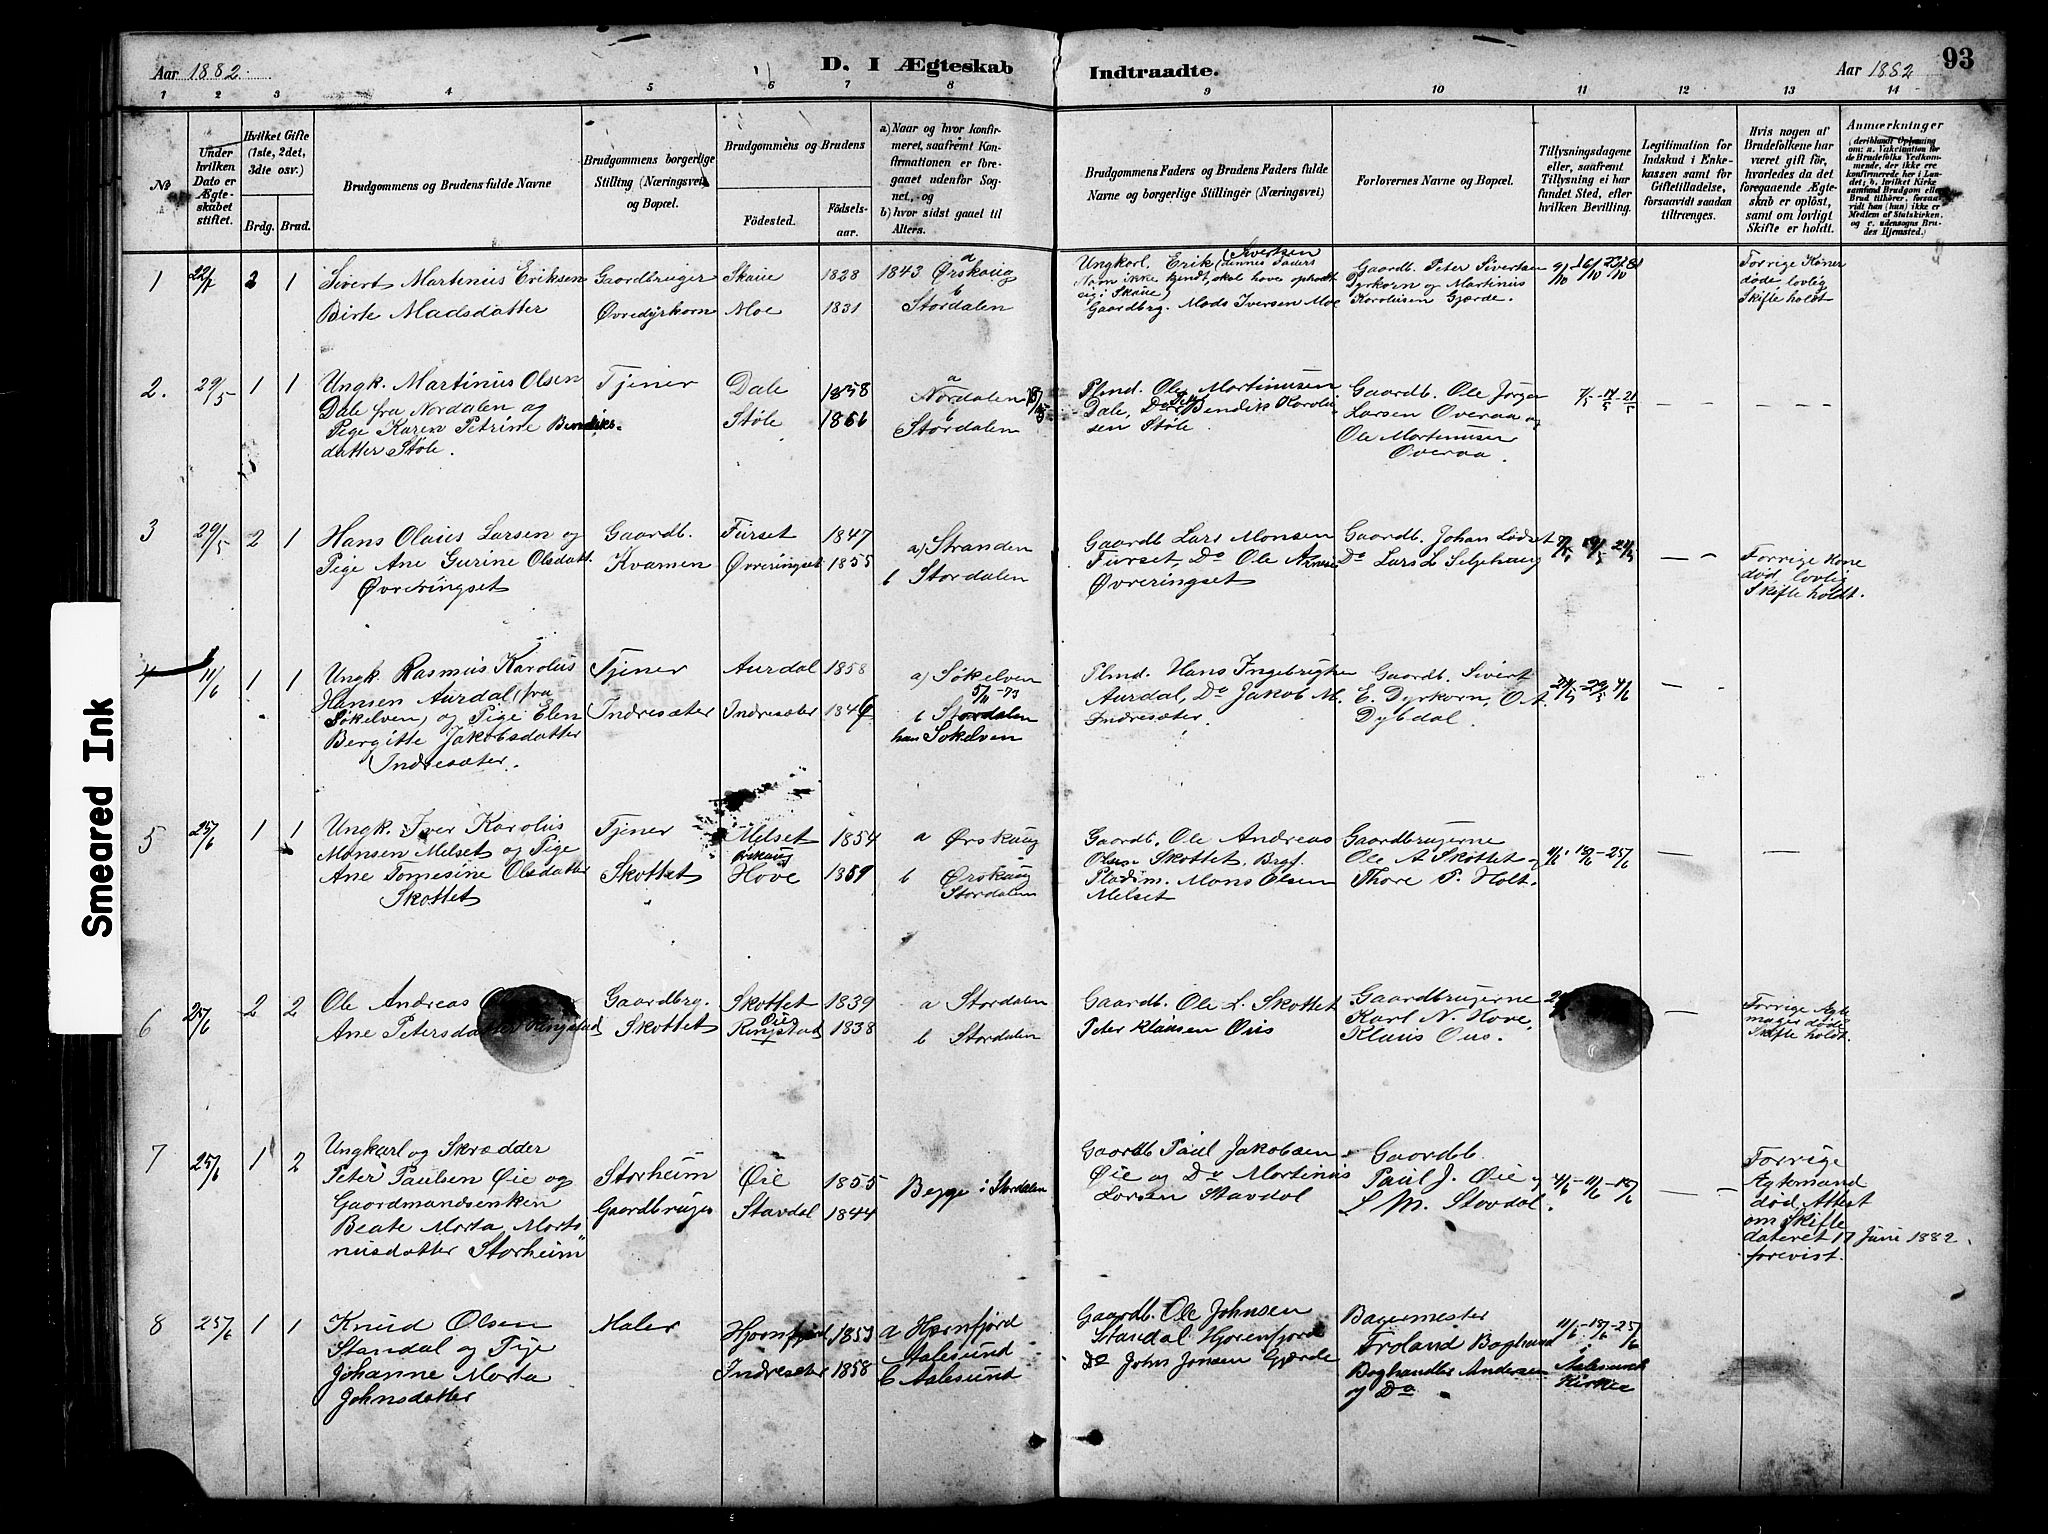 Aar 1882.
D. I Ægteskab
Indtraadte.
Aar 1882
93
1 2 3 4 5 6 7 8 9 10 11 12 13 14
No
Under hvilken Dato er Ægteskabet stiftet.
Hvilket Gifte (1ste, 2det, 3die osv.)
Brdg. Brud.
Brudgommens og Brudens fulde Navne
Brudgommens borgerlige Stilling (Næringsvei) og Bopæl.
Brudgommens og Brudens
Födested.
Födselsaar.
a) Naar og hvor konfirmeret, saafremt Konfirmationen er foregaaet udenfor Sognet, og
b) hvor sidst gaaet til Alters.
Brudgommens Faders og Brudens Faders fulde Navne og borgerlige Stillinger (Næringsvei)
Forlovernes Navne og Bopæl.
Tillysningsdagene eller, saafremt Tillysning ei har fundet Sted, efter hvilken Bevilling.
Legitimation for Indskud i Enkekassen samt for Giftetilladelse, forsaavidt saadan tiltrænges.
Hvis nogen af Brudefolkene har været gift för, hvorledes da det foregaaende Ægteskab er oplöst, samt om lovligt Skifte er holdt.
Anmærkninger
(deriblandt Oplysning om: a. Vakcination for de Brudefolks Vedkommende, der ikke ere konfirmerede her i Landet; b. hvilket Kirkesamfund Brudgom eller Brud tilhörer, forsaavidt han (hun) ikke er Medlem af Statskirken, og c. udensogns Brudes Hjemsted.)
1 2 1
Sivert Martinius Eriksen
Birte Madsdatter
Gaardbruger
Øvredyrkorn
Skaue 1828
Moe 1831
1843 a Ørskoug
b Stordalen
Ungkarl. Erik Sivertsen (dennes Faders
Navn ikke kjendt, skal have opholdt
sig i Skaue)
Gaardbrg. Mads Iversen Moe
Gaardb. Peter Sivertsen
Dyrkorn og Martinius
Karolusen Gjærde.
9/10 16/10 23/10 81
Forrige Kone
døde lovlig
Skifte holdt
2. 29/5 1 1
Ungk. Martinius Olsen
Dale fra Nordalen og
Pige Karen Petrine Bendiks-
datter Støle.
Tjener
Dale 1858
Støle 1866
a Nordalen
b Stordalen
Plmd. Ole Martinusen
Dale, Do Bendik Karolu-
sen Støle.
Gaardb. Ole Jørgen
Larsen Overaa og
Ole Martinusen
Overaa.
7/5 - 14/5 - 21/5
3 29/5 2 1
Hans Olaus Larsen og
Pige Ane Gurine Olsdatt.
Øvreringset
Gaardb.
Kvamen
Furset 1847
Øvreringset 1855
a) Stranden
b Stordalen
Gaardb Lars Monsen
Furset, Do Ole Arnesen
Øvreringset
Gaardb. Johan Lødset
Do Lars L Seljehaug
Forrige Kone
død lovlig
Skifte holdt.
4 11/6 1 1
Ungk. Rasmus Karolus
Hansen Aurdal, fra
Søkelven, og Pige Elen
Bergitte Jakobsdatter
Indresæter.
Tjener
Indresæter
Aurdal 1858
Indresæter 1846
a) Søkelven
5/11-73
b Stordalen
han Søkelven
Plmd. Hans Ingebrigtsen
Aurdal, Do Jakob M.
Indresæter.
Gaardb. Sivert
E. Dyrkorn, O. A.
Dybdal.
5 25/6 1 1
Ungk. Iver Karolus
Monsen Melset og Pige
Ane Tomesine Olsdatter
Skottet
Tjener
Skottet
Melset 1854
Ørskoug
Hove 1859
a Ørskoug
b Ørskoug
Stordalen
Gaardb. Ole Andreas
Olsen Skottet, Brgf.
Pladsm. Mons Olsen
Melset
Gaardbrugerne
Ole A Skottet og
Thore P. Holt.
11/6 18/6 - 25/6
6 25/6 2 2
Ole Andreas
Ane Petersdatter Ringstad
Gaardbrg.
Skottet
Skottet 1839
Øie
Ringstad 1838
a Stordalen
b Stordalen
Gaardb. Ole L. Skottet
Peter Klausen Øus
Gaardbrugerne
Karl N. Hove,
Klaus Øus.
Forrige Ægte
mager døde
Skifte holdt.
7 25/6 1 2
Ungkarl og Skrædder
Peter Paulsen Øie og
Gaardmandsenken
Beate Marta Marti-
nusdatter Storheim
Storheim
Gaardbruger
Øie 1855
Stavdal 1844
Begge i Stordalen
Gaardb Paul Jakobsen
Øie og Do Martinus
Larsen Stavdal
Gaardb.
Paul J. Øie og
L M. Stavdal.
4/6 - 11/6 - 18/6
Forrige
Ægtemand
død Attest
om Skifte
dateret 17 Juni 1882.
forevist.
8 25/6 1 1
Knud Olsen
Standal og Pige
Johanne Marta
Johnsdatter
Maler
Hjørnfjord 1853
Indresæter 1858
a Hørnfjord
Aalesund
b Aalesund
Gaardb. Ole Johnsen
Standal Hjørenfjord
Do John Jonsen Gjærde
Bagermester
Froland
Boghandler Andersen
og Do
11/6 - 18/6 - 25/6
i Aalesunds
Kirke
Smeared Ink